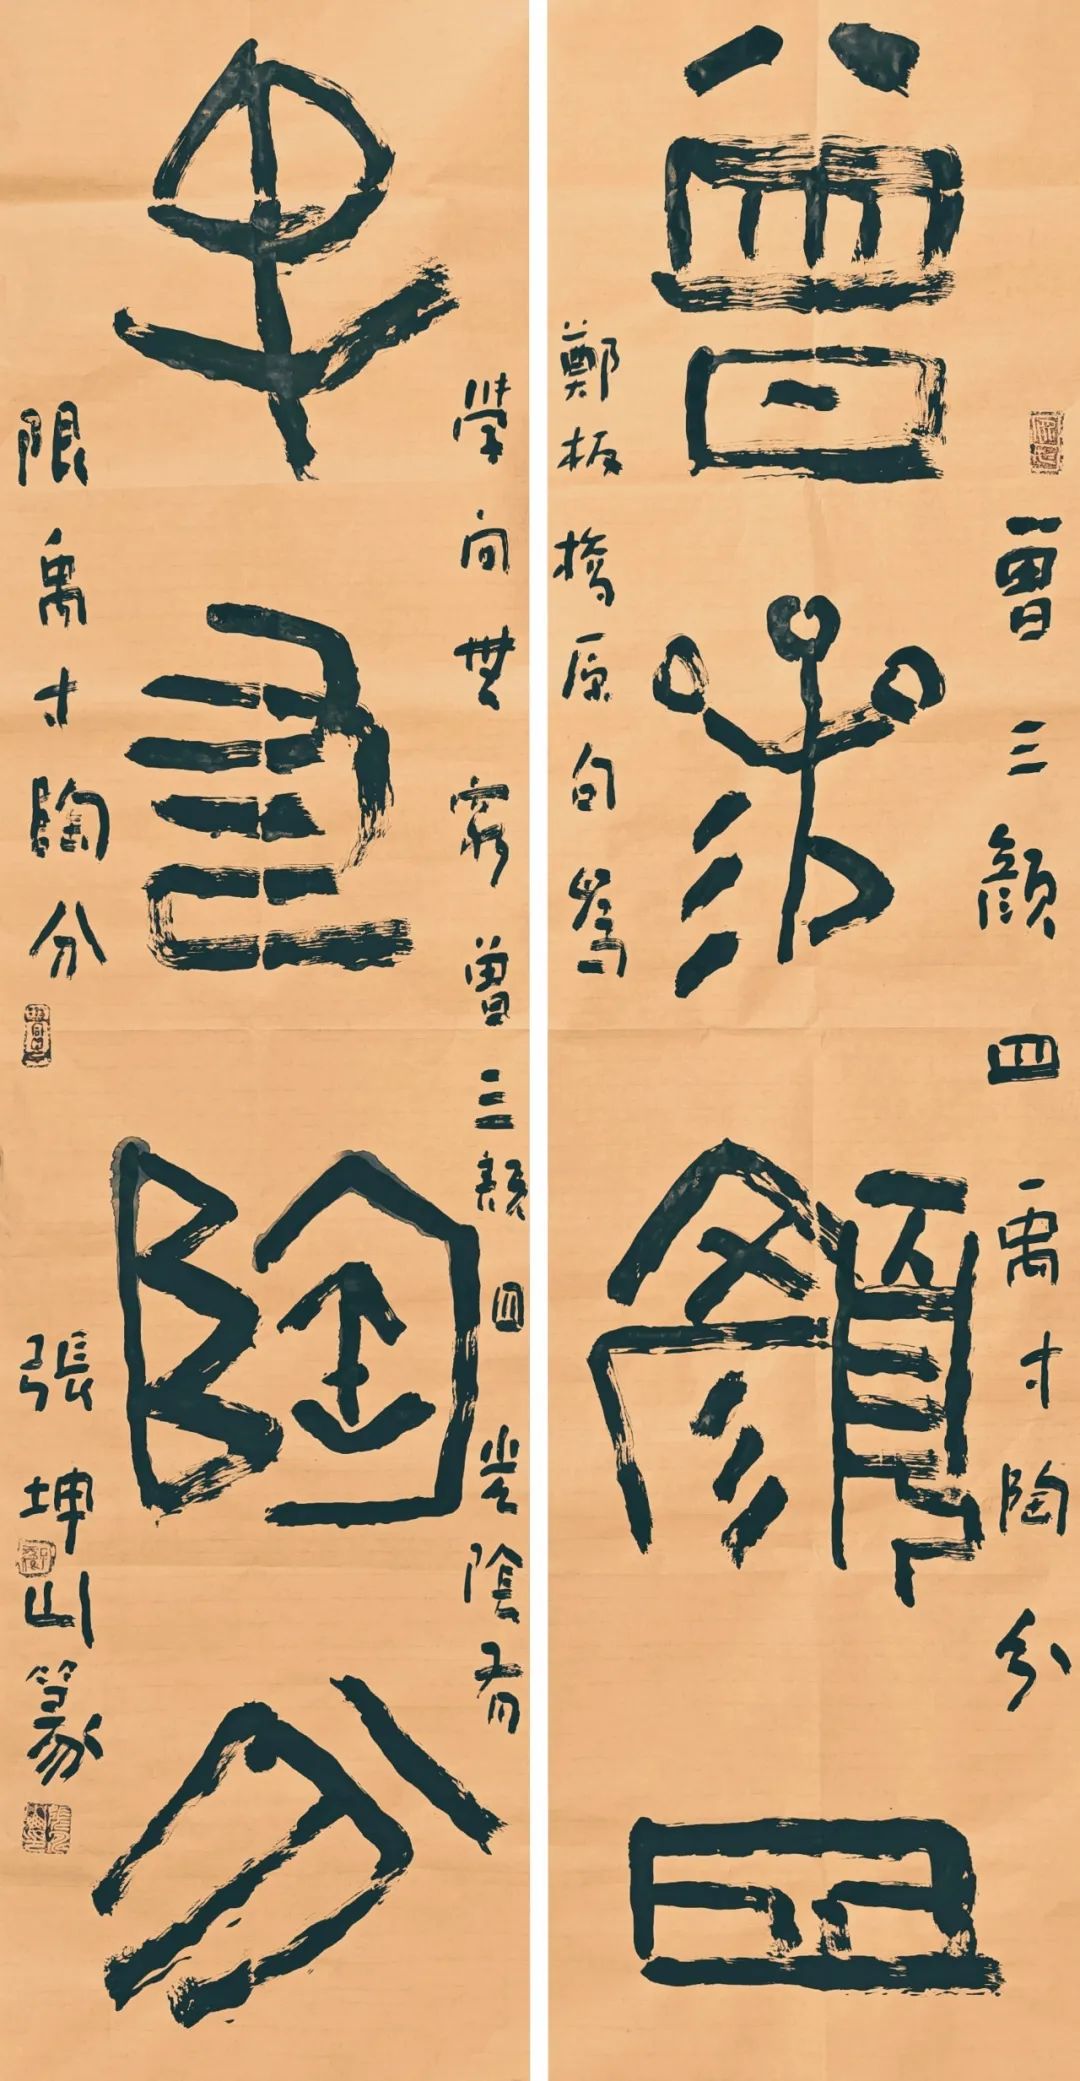 曾三顏四禹寸陶分
曾參顏四
鄭板橋原句為
學問無窮曾三顏四光陰有
禹寸陶分
限禹寸陶分
張坤山篆